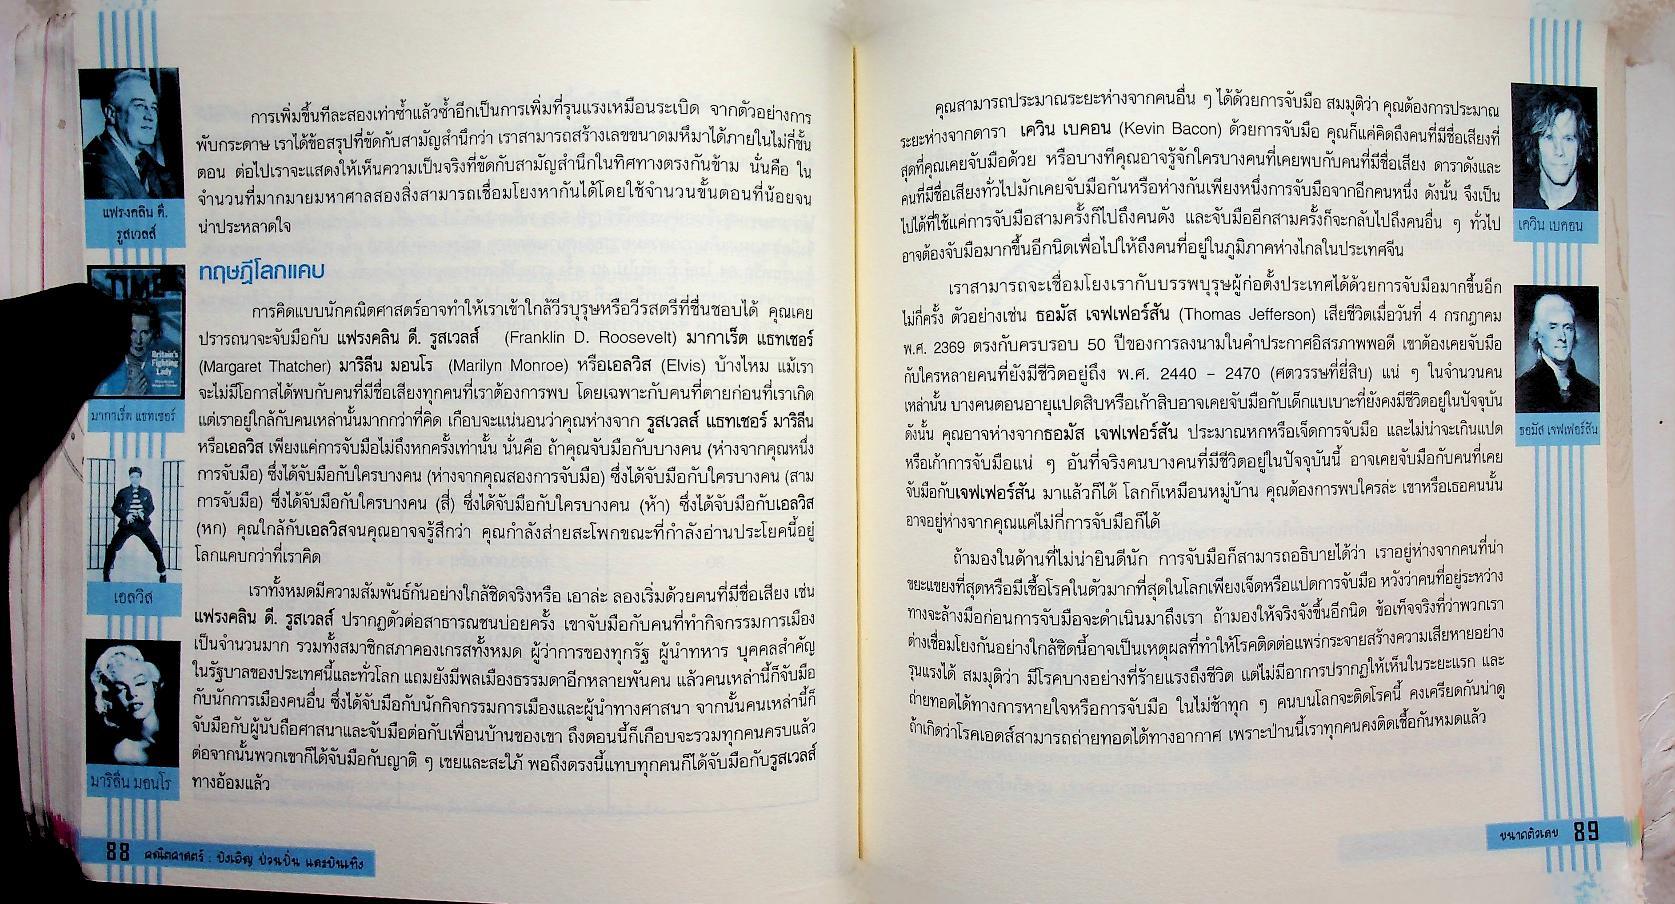 แฟรงคลิน ดี.
รูสเวลส์
TIME
Britain's
Fighting
Lady
มากาเร็ต แธทเชอร์
เอลวิส
มาริลีน มอนโร
การเพิ่มขึ้นทีละสองเท่าซ้ำแล้วซ้ำอีกเป็นการเพิ่มที่รุนแรงเหมือนระเบิด จากตัวอย่างการ
พับกระดาษ เราได้ข้อสรุปที่ขัดกับสามัญสำนึกว่า เราสามารถสร้างเลขขนาดมหึมาได้ภายในไม่กี่ขั้น
ตอน ต่อไปเราจะแสดงให้เห็นความเป็นจริงที่ขัดกับสามัญสำนึกในทิศทางตรงกันข้าม นั่นคือ ใน
จำนวนที่มากมายมหาศาลสองสิ่งสามารถเชื่อมโยงหากันได้โดยใช้จำนวนขั้นตอนที่น้อยจน
น่าประหลาดใจ
ทฤษฎีโลกแคบ
การคิดแบบนักคณิตศาสตร์อาจทำให้เราเข้าใกล้วีรบุรุษหรือวีรสตรีที่ชื่นชอบได้ คุณเคย
ปรารถนาจะจับมือกับ แฟรงคลิน ดี. รูสเวลส์ (Franklin D. Roosevelt) มากาเร็ต แธทเชอร์
(Margaret Thatcher) มาริลีน มอนโร (Marilyn Monroe) หรือเอลวิส (Elvis) บ้างไหม แม้เรา
จะไม่มีโอกาสได้พบกับคนที่มีชื่อเสียงทุกคนที่เราต้องการพบ โดยเฉพาะกับคนที่ตายก่อนที่เราเกิด
แต่เราอยู่ใกล้กับคนเหล่านั้นมากกว่าที่คิด เกือบจะแน่นอนว่าคุณห่างจาก รูสเวลส์ แธทเชอร์ มาริลีน
หรือเอลวิส เพียงแค่การจับมือไม่ถึงหกครั้งเท่านั้น นั่นคือ ถ้าคุณจับมือกับบางคน (ห่างจากคุณหนึ่ง
การจับมือ) ซึ่งได้จับมือกับใครบางคน (ห่างจากคุณสองการจับมือ) ซึ่งได้จับมือกับใครบางคน (สาม
การจับมือ) ซึ่งได้จับมือกับใครบางคน (สี่) ซึ่งได้จับมือกับใครบางคน (ห้า) ซึ่งได้จับมือกับเอลวิส
(หก) คุณใกล้กับเอลวิสจนคุณอาจจะรู้สึกว่า คุณกำลังส่ายสะโพกขณะที่กำลังอ่านประโยคนี้อยู่
โลกแคบกว่าที่เราคิด
เราทั้งหมดมีความสัมพันธ์กันอย่างใกล้ชิดจริงหรือ เอาล่ะ ลองเริ่มด้วยคนที่มีชื่อเสียง เช่น
แฟรงคลิน ดี. รูสเวลส์ ปรากฏตัวต่อสาธารณชนบ่อยครั้ง เขาจับมือกับคนที่ทำกิจกรรมการเมือง
เป็นจำนวนมาก รวมทั้งสมาชิกสภาคองเกรสทั้งหมด ผู้ว่าการของทุกรัฐ ผู้นำทหาร บุคคลสำคัญ
ในรัฐบาลของประเทศนี้และทั่วโลก แถมยังมีพลเมืองธรรมดาอีกหลายพันคน แล้วคนเหล่านี้ก็จับมือ
กับนักการเมืองคนอื่น ซึ่งได้จับมือกับนักกิจกรรมการเมืองและผู้นำทางศาสนา จากนั้นคนเหล่านี้ก็
จับมือกับผู้นับถือศาสนาและจับมือต่อกับเพื่อนบ้านของเขา ถึงตอนนี้ก็เกือบจะรวมทุกคนครบแล้ว
ต่อจากนั้นพวกเขาก็ได้จับมือกับญาติ ๆ เขยและสะใภ้ พอถึงตรงนี้แทบทุกคนก็ได้จับมือกับรูสเวลส์
ทางอ้อมแล้ว
88 คณิตศาสตร์ : บังเอิญ ป่วนปั่น และบันเทิง
คุณสามารถประมาณระยะห่างจากคนอื่น ๆ ได้ด้วยการจับมือ สมมุติว่า คุณต้องการประมาณ
ระยะห่างจากดารา เควิน เบคอน (Kevin Bacon) ด้วยการจับมือ คุณก็แค่คิดถึงคนที่มีชื่อเสียงที่
สุดที่คุณเคยจับมือด้วย หรือบางทีคุณอาจรู้จักใครบางคนที่เคยพบกับคนที่มีชื่อเสียง ดาราดังและ
คนที่มีชื่อเสียงทั่วไปมักเคยจับมือกันหรือห่างกันเพียงหนึ่งการจับมือจากอีกคนหนึ่ง ดังนั้น จึงเป็น
ไปได้ที่ใช้แค่การจับมือสามครั้งก็ไปถึงคนดัง และจับมืออีกสามครั้งก็จะกลับไปถึงคนอื่น ๆ ทั่วไป
อาจต้องจับมือมากขึ้นอีกนิดเพื่อไปให้ถึงคนที่อยู่ในภูมิภาคห่างไกลในประเทศจีน
เราสามารถจะเชื่อมโยงเรากับบรรพบุรุษผู้ก่อตั้งประเทศได้ด้วยการจับมือมากขึ้นอีก
ไม่กี่ครั้ง ตัวอย่างเช่น ธอมัส เจฟเฟอร์สัน (Thomas Jefferson) เสียชีวิตเมื่อวันที่ 4 กรกฎาคม
พ.ศ. 2369 ตรงกับครบรอบ 50 ปีของการลงนามในคำประกาศอิสรภาพพอดี เขาต้องเคยจับมือ
กับใครหลายคนที่ยังมีชีวิตอยู่ถึง พ.ศ. 2440 – 2470 (ศตวรรษที่ยี่สิบ) แน่ ๆ ในจำนวนคน
เหล่านั้น บางคนตอนอายุแปดสิบหรือเก้าสิบอาจเคยจับมือกับเด็กแบเบาะที่ยังคงมีชีวิตอยู่ในปัจจุบัน
ดังนั้น คุณอาจห่างจากธอมัส เจฟเฟอร์สัน ประมาณหกหรือเจ็ดการจับมือ และไม่น่าจะเกินแปด
หรือเก้าการจับมือแน่ ๆ อันที่จริงคนบางคนที่มีชีวิตอยู่ในปัจจุบันนี้ อาจเคยจับมือกับคนที่เคย
จับมือกับเจฟเฟอร์สัน มาแล้วก็ได้ โลกก็เหมือนหมู่บ้าน คุณต้องการพบใครล่ะ เขาหรือเธอคนนั้น
อาจอยู่ห่างจากคุณแค่ไม่กี่การจับมือก็ได้
ถ้ามองในด้านที่ไม่น่ายินดีนัก การจับมือก็สามารถอธิบายได้ว่า เราอยู่ห่างจากคนที่น่า
ขยะแขยงที่สุดหรือมีเชื้อโรคในตัวมากที่สุดในโลกเพียงเจ็ดหรือแปดการจับมือ หวังว่าคนที่อยู่ระหว่าง
ทางจะล้างมือก่อนการจับมือจะดำเนินมาถึงเรา ถ้ามองให้จริงจังขึ้นอีกนิด ข้อเท็จจริงที่ว่าพวกเรา
ต่างเชื่อมโยงกันอย่างใกล้ชิดนี้อาจเป็นเหตุผลที่ทำให้โรคติดต่อแพร่กระจายสร้างความเสียหายอย่าง
รุนแรงได้ สมมุติว่า มีโรคบางอย่างที่ร้ายแรงถึงชีวิต แต่ไม่มีอาการปรากฏให้เห็นในระยะแรก และ
ถ่ายทอดได้ทางการหายใจหรือการจับมือ ในไม่ช้าทุก ๆ คนบนโลกจะติดโรคนี้ คงเครียดกันน่าดู
ถ้าเกิดว่าโรคเอดส์สามารถถ่ายทอดได้ทางอากาศ เพราะป่านนี้เราทุกคนคงติดเชื้อกันหมดแล้ว
เควิน เบคอน
ธอมัส เจฟเฟอร์สัน
ขนาดตัวเลข 89